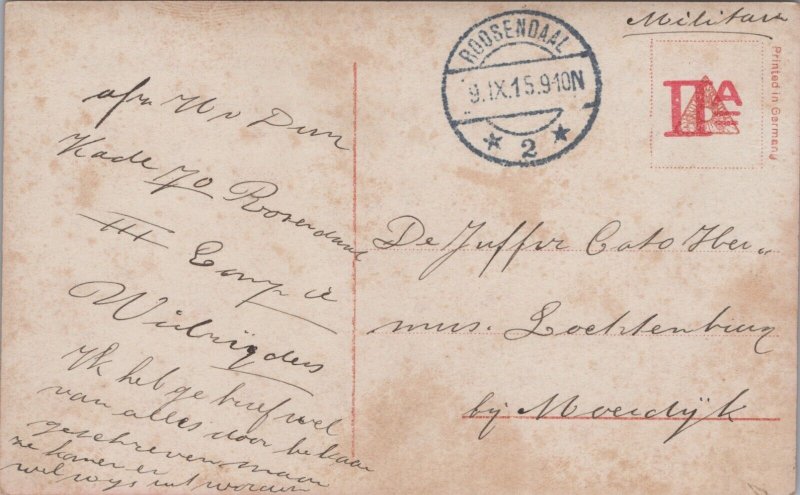 Militair
ROOSENDAAL
9.IX.15.9-10N
* 2 *
Printed in Germany
afz H v Dun
Kade 70 Roosendaal
III Comp ie
Wielrijders
Ik heb ge brief wel
van alles door
geschreven maar
ze komen er
wel wijs uit worden
De Juffr Cato Her„
mus. Lochtenburg
bij Moerdijk